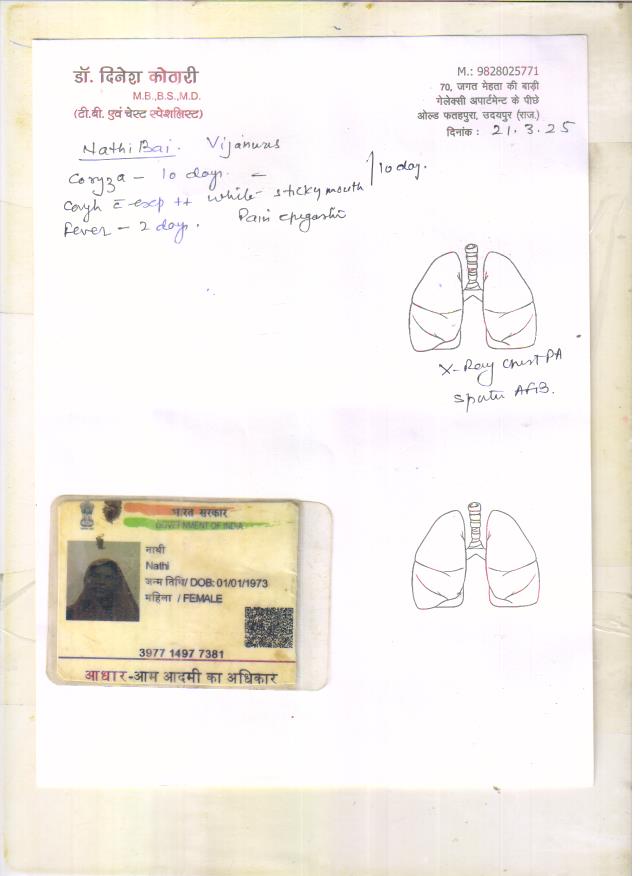 डॉ. दिनेश कोठारी
M.B.,B.S.,M.D.
(टी.बी. एवं चेस्ट स्पेशलिस्ट)
M.: 9828025771
70, जगत मेहता की बाड़ी
गेलेक्सी अपार्टमेन्ट के पीछे
ओल्ड फतहपुरा, उदयपुर (राज.)
दिनांक : 21.3.25
Nathi Bai.
Coryza - 10 days.
Cough c exp ++ white - sticky mouth 10 day.
Fever - 2 days. Pain
X-Ray Chest PA
AFB.
भारत सरकार
GOVERNMENT OF INDIA
नाथी
Nathi
जन्म तिथि/ DOB: 01/01/1973
महिला / FEMALE
3977 1497 7381
आधार-आम आदमी का अधिकार